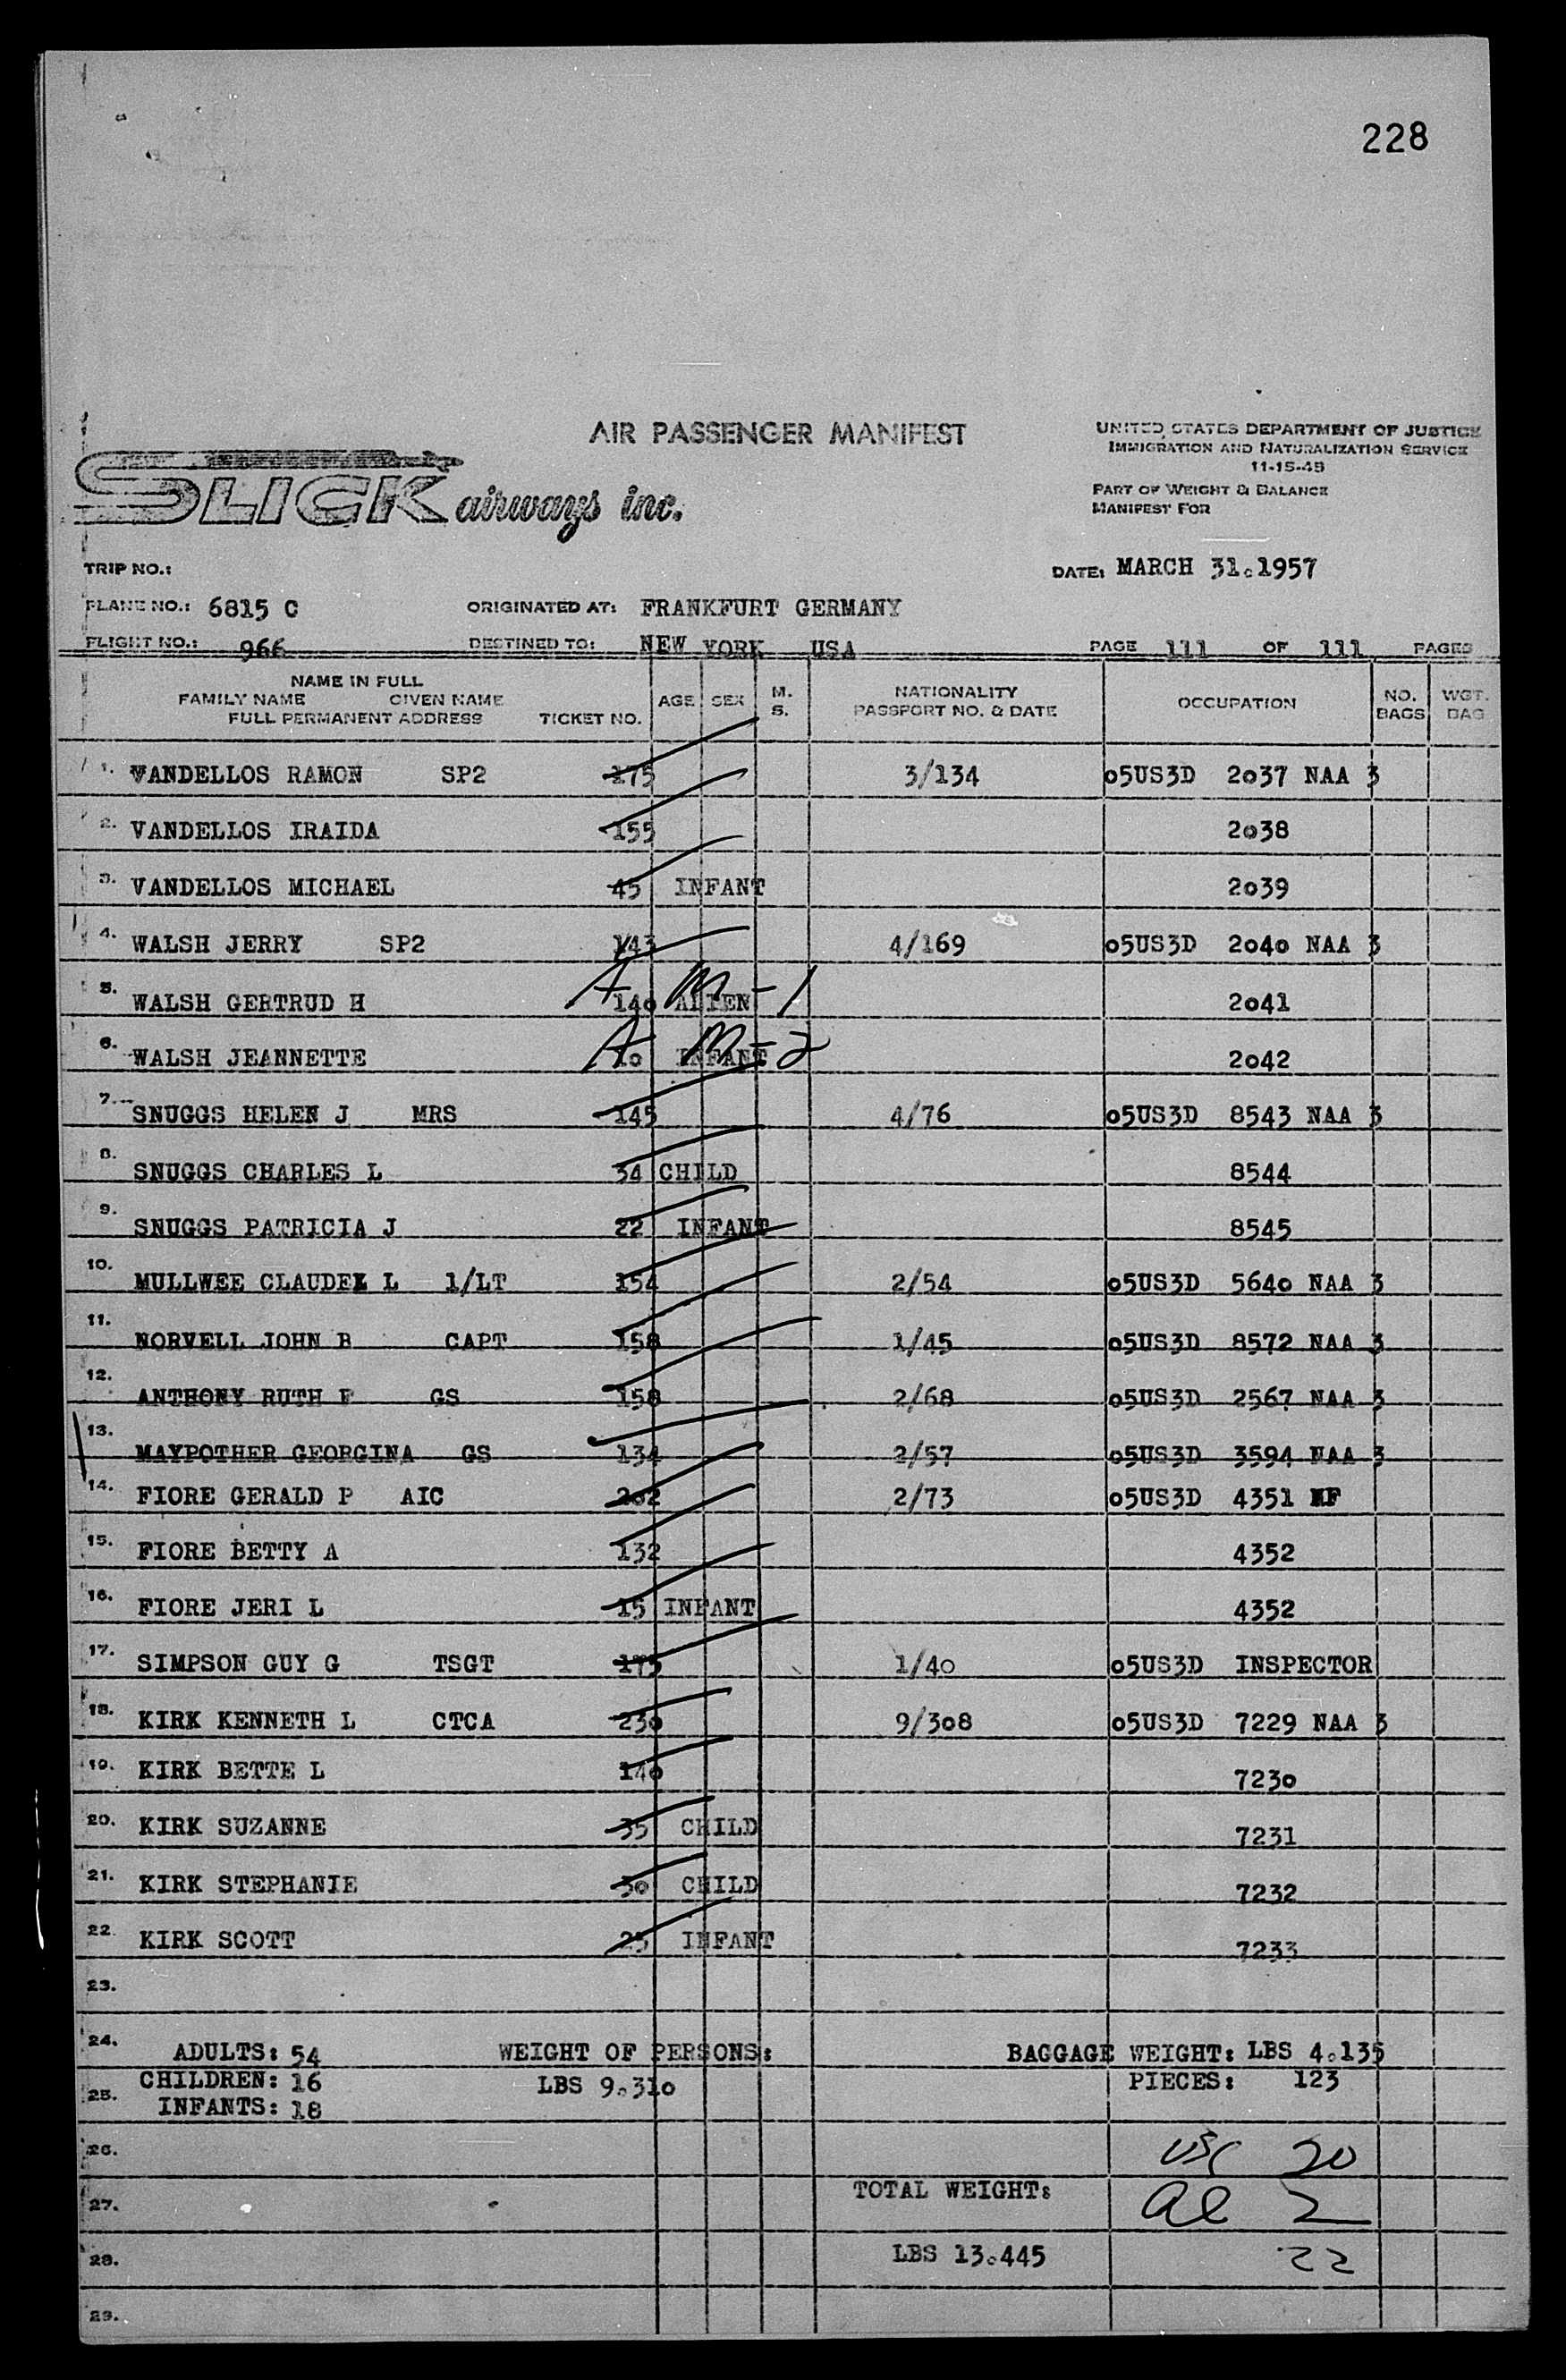 228
AIR PASSENGER MANIFEST
UNITED STATES DEPARTMENT OF JUSTICE
IMMIGRATION AND NATURALIZATION SERVICE
11-15-45
PART OF WEIGHT & BALANCE
MANIFEST FOR
SLICK airways inc.
TRIP NO.:
DATE: MARCH 31.1957
PLANE NO.: 6815 C ORIGINATED AT: FRANKFURT GERMANY
FLIGHT NO.: 966 DESTINED TO: NEW YORK USA PAGE 111 OF 111 PAGES
NAME IN FULL
FAMILY NAME GIVEN NAME
FULL PERMANENT ADDRESS TICKET NO. AGE SEX M. S. NATIONALITY PASSPORT NO. & DATE OCCUPATION NO. BAGS WGT. BAG
1. VANDELLOS RAMON SP2 175 3/134 05US3D 2037 NAA 3
2. VANDELLOS IRAIDA 155 2038
3. VANDELLOS MICHAEL 45 INFANT 2039
4. WALSH JERRY SP2 143 4/169 05US3D 2040 NAA 3
5. WALSH GERTRUD H 140 ALIEN A M-1 2041
6. WALSH JEANNETTE 10 INFANT A M-2 2042
7. SNUGGS HELEN J MRS 145 4/76 05US3D 8543 NAA 3
8. SNUGGS CHARLES L 34 CHILD 8544
9. SNUGGS PATRICIA J 22 INFANT 8545
10. MULLWEE CLAUDEL L 1/LT 154 2/54 05US3D 5640 NAA 3
11. NORVELL JOHN B CAPT 158 1/45 05US3D 8572 NAA 3
12. ANTHONY RUTH F GS 158 2/68 05US3D 2567 NAA 3
13. MAYPOTHER GEORGINA GS 134 2/57 05US3D 3594 NAA 3
14. FIORE GERALD P AIC 202 2/73 05US3D 4351 NF
15. FIORE BETTY A 132 4352
16. FIORE JERI L 15 INFANT 4352
17. SIMPSON GUY G TSGT 175 1/40 05US3D INSPECTOR
18. KIRK KENNETH L CTCA 230 9/308 05US3D 7229 NAA 3
19. KIRK BETTE L 140 7230
20. KIRK SUZANNE 35 CHILD 7231
21. KIRK STEPHANIE 30 CHILD 7232
22. KIRK SCOTT 25 INFANT 7233
23.
24. ADULTS: 54 WEIGHT OF PERSONS: BAGGAGE WEIGHT: LBS 4.135
CHILDREN: 16 LBS 9.310 PIECES: 123
25. INFANTS: 18
26. USC 20
27. TOTAL WEIGHT: al 2
28. LBS 13.445 22
29.